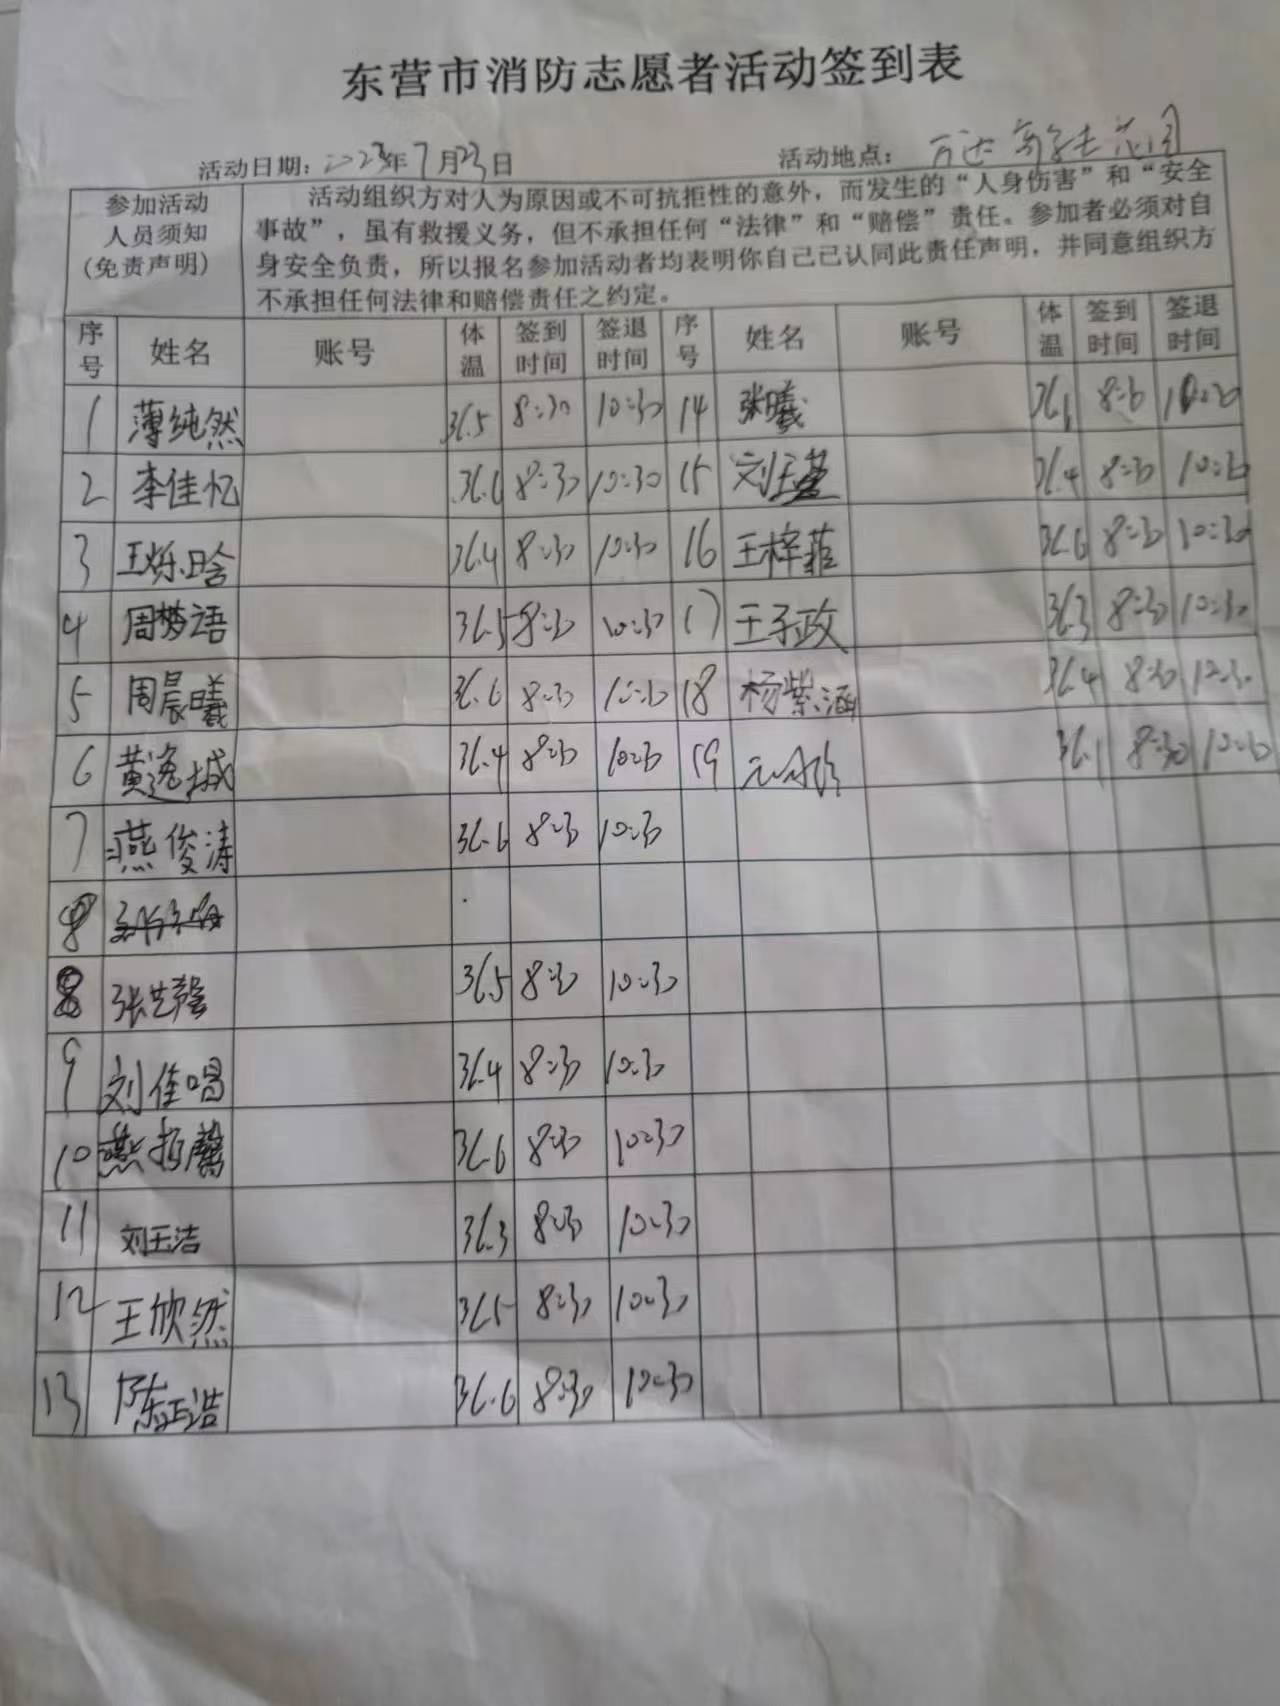 东营市消防志愿者活动签到表
活动日期：2023年7月23日 活动地点：万达 花园
参加活动人员须知（免责声明）
活动组织方对人为原因或不可抗拒性的意外，而发生的“人身伤害”和“安全
事故”，虽有救援义务，但不承担任何“法律”和“赔偿”责任。参加者必须对自
身安全负责，所以报名参加活动者均表明你自己已认同此责任声明，并同意组织方
不承担任何法律和赔偿责任之约定。
序号 姓名 账号 体温 签到时间 签退时间 序号 姓名 账号 体温 签到时间 签退时间
1 薄纯然 36.5 8:30 10:30 14 张曦 36.1 8:30 10:30
2 李佳忆 36.6 8:30 10:30 15 刘玉莹 36.4 8:30 10:30
3 王烁晗 36.4 8:30 10:30 16 王梓菲 36.6 8:30 10:30
4 周梦语 36.5 8:30 10:30 17 王子政 36.3 8:30 10:30
5 周晨曦 36.6 8:30 10:30 18 杨紫涵 36.4 8:30 10:30
6 黄逸城 36.4 8:30 10:30 19 36.1 8:30 10:30
7 燕俊涛 36.6 8:30 10:30
8
8 张艺馨 36.5 8:30 10:30
9 刘佳 36.4 8:30 10:30
10 燕 馨 36.6 8:30 10:30
11 刘玉洁 36.3 8:30 10:30
12 王欣然 36.5 8:30 10:30
13 陈正浩 36.6 8:30 10:30